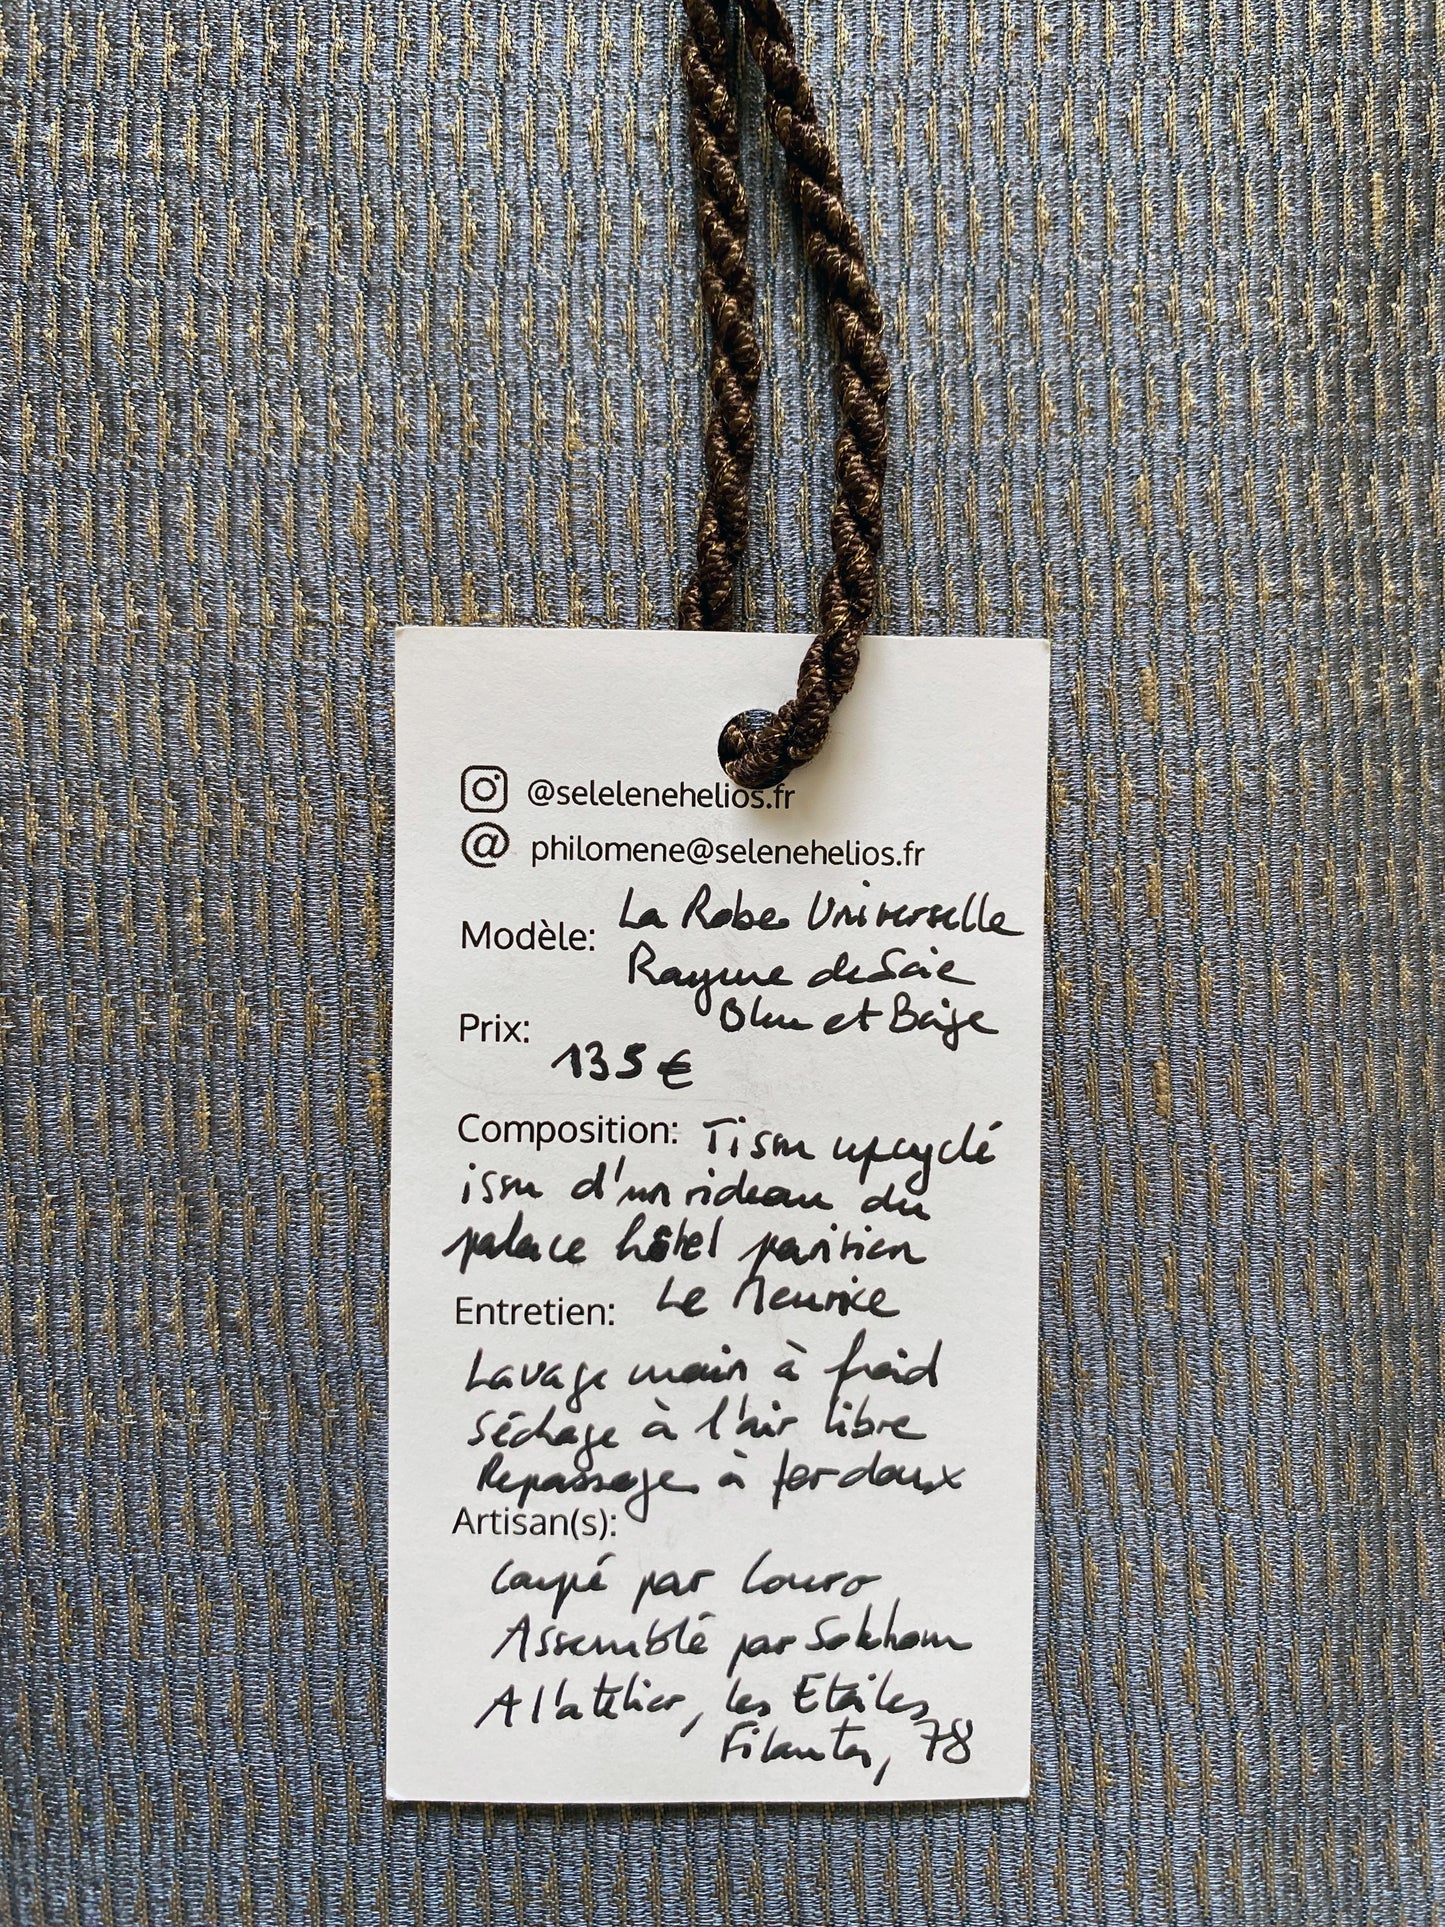 @selelenehelios.fr
philomene@selenehelios.fr
Modèle: La Robe Universelle
Rayure de Soie
Bleu et Beige
Prix: 135 €
Composition: Tissu upcyclé
issu d'un rideau du
palace hôtel parisien
Le Meurice
Entretien:
Lavage main à froid
Séchage à l'air libre
Repassage à fer doux
Artisan(s):
Coupé par Louro
Assemblé par Sokhom
A l'atelier, les Etoiles
Filantes, 78